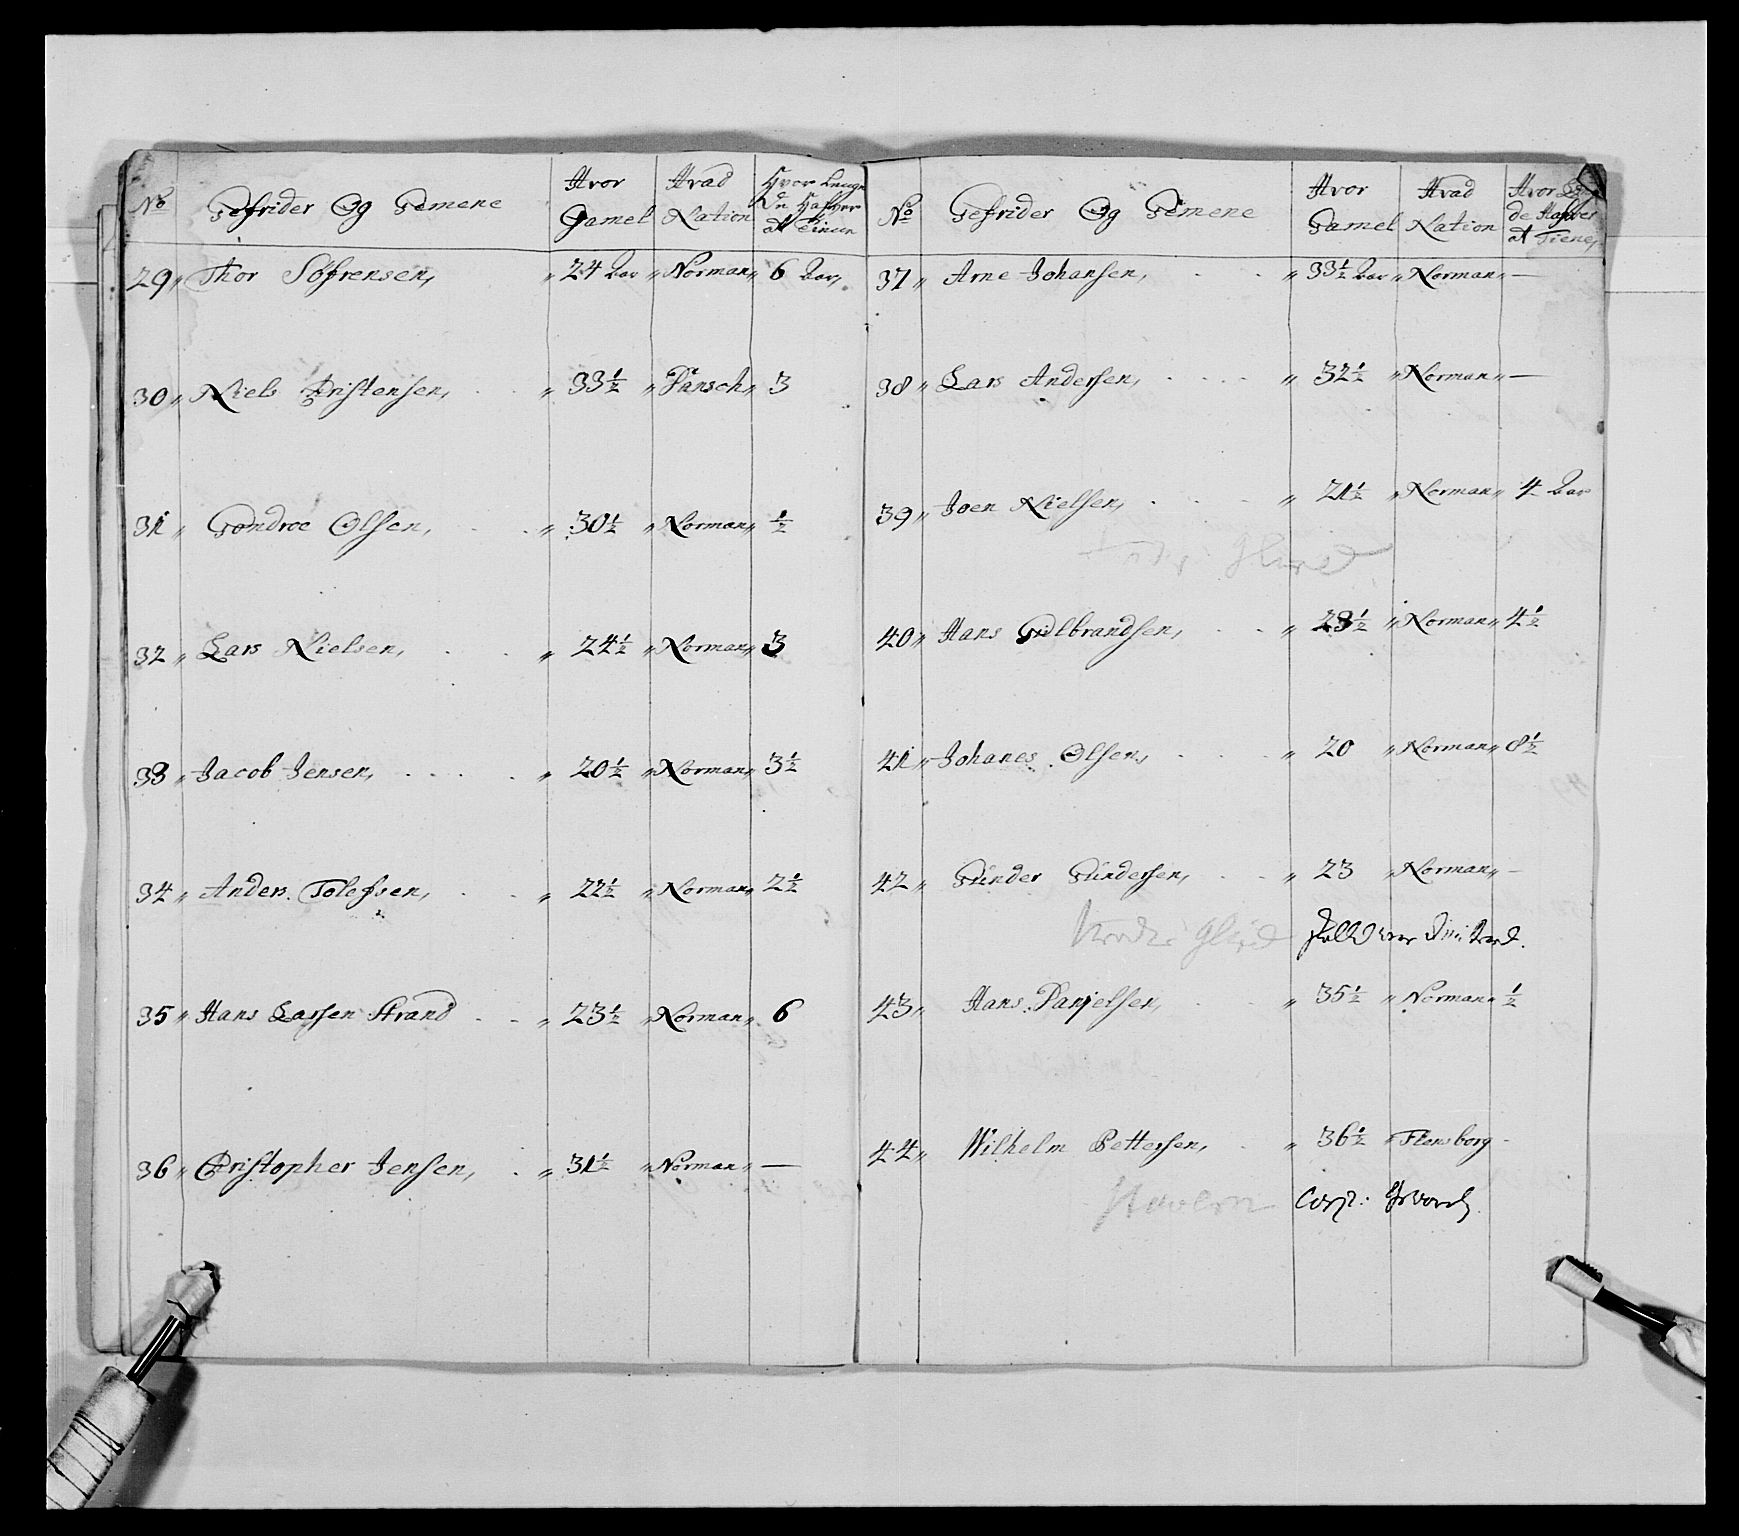 No Gefrider Og Gemene Hvor Gamel Hvad Nation Hvor Lenge De Hafver at Tinen
29 „ Thor Söfrensen, „ 24 Aar „ Norman „ 6 Aar,
30 „ Niels Cristensen, „ 33½ „ Dansch „ 3
31 „ Gondroe Olsen, „ 30½ „ Norman „ ½
32 „ Lars Nielsen, „ 24½ „ Norman „ 3
33 „ Jacob Jensen, „ 20½ „ Norman „ 3½
34 „ Anders Tolefsen, „ 22½ „ Norman „ 2½
35 „ Hans Larsen Strand „ 23½ „ Norman „ 6
36 „ Cristopher Jensen, „ 31½ „ Norman „ —
No Gefrider Og Gemene Hvor Gamel Hvad Nation Hvor de Hafver at Tiene,
37 „ Arne Johansen, „ 33½ Aar „ Norman „ —
38 „ Lars Andersen, „ 32½ „ Norman „ —
39 „ Joen Nielsen, „ 21½ „ Norman „ 4 Aar
40 „ Hans Gulbrandsen, „ 23½ „ Norman „ 4½
41 „ Johanes Olsen, „ 20 „ Norman „ 8½
42 „ Gunder Gundersen, „ 23 „ Norman „ –
43 „ Hans Danjelsen, „ 35½ „ Norman „ ½
44 „ Wilhelm Pettersen, „ 36½ „ Flensborg –
Stavern Corp: